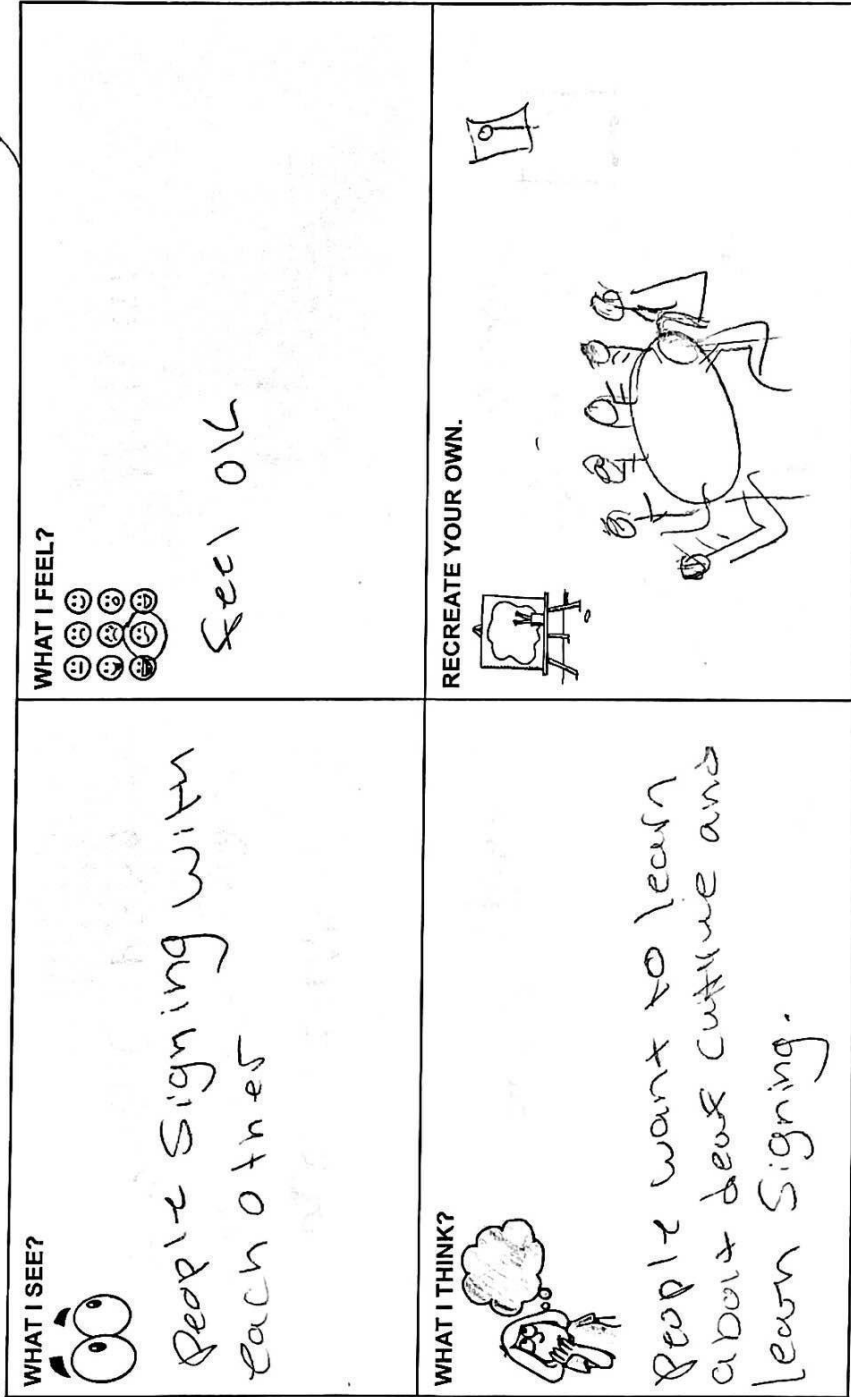 WHAT I SEE?
People Signing with
each other
WHAT I FEEL?
feel ok
WHAT I THINK?
People want to learn
about deaf cutlure and
learn Signing.
RECREATE YOUR OWN.